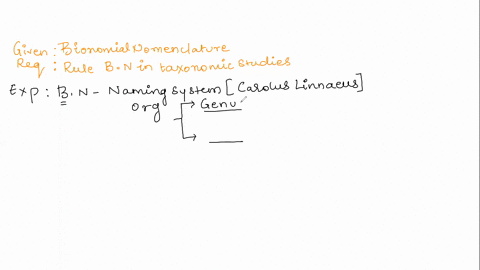 Given : Bionomial Nomenclature
Req : Rule B.N in taxonomic studies
Exp : B.N - Naming system [Carolus Linnaeus]
org Genu